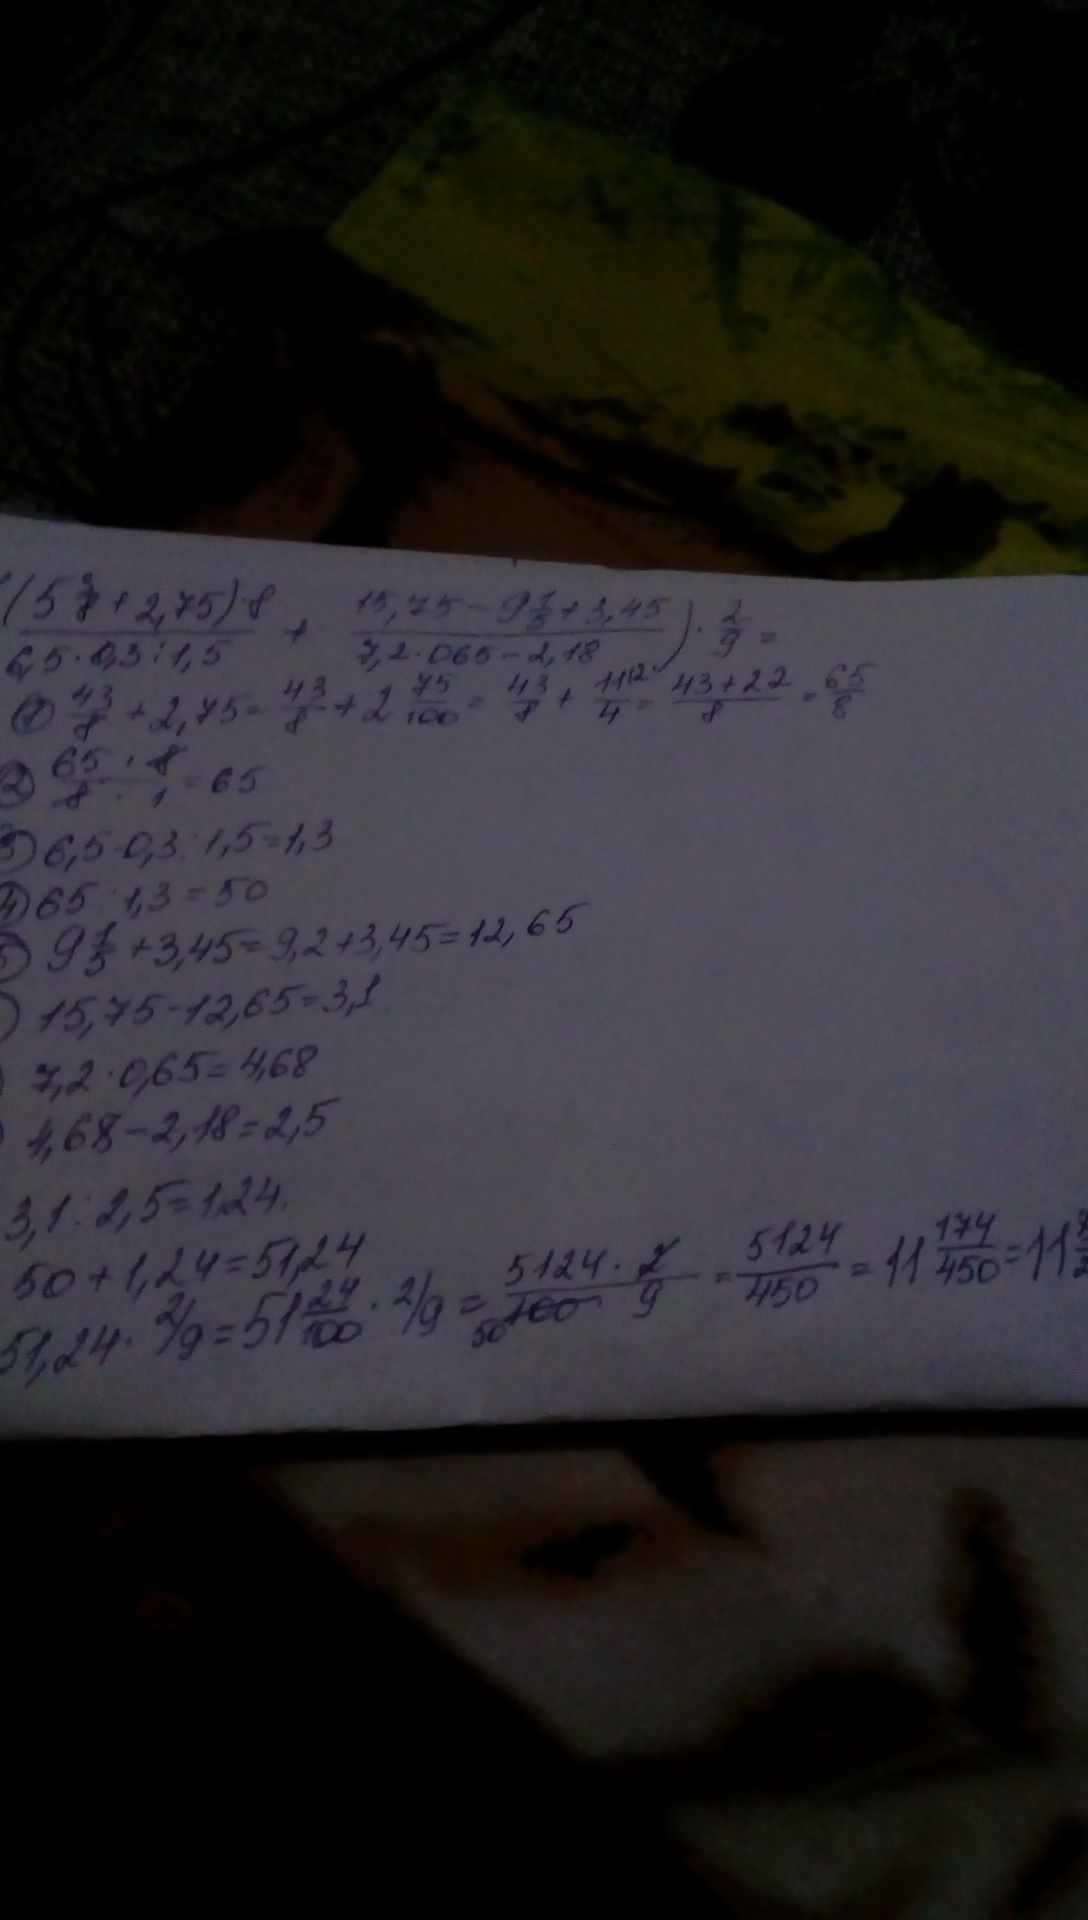 ((5 3/8 + 2,75)·8)/(6,5·0,3:1,5) + (15,75 - 9 1/5 + 3,45)/(7,2·065 - 2,18))·2/9 =
① 43/8 + 2,75 = 43/8 + 2 75/100 = 43/8 + 11/4 = (43+22)/8 = 65/8
② (65·8)/(8·1) = 65
3) 6,5·0,3:1,5=1,3
4) 65:1,3=50
5) 9 1/5 + 3,45 = 9,2+3,45=12,65
) 15,75-12,65=3,1
) 7,2·0,65=4,68
) 4,68-2,18=2,5
3,1:2,5=1,24.
50+1,24=51,24
51,24·2/9=51 24/100·2/9 = (5124·2)/(100·9) 50 = 5124/450 = 11 174/450 = 11